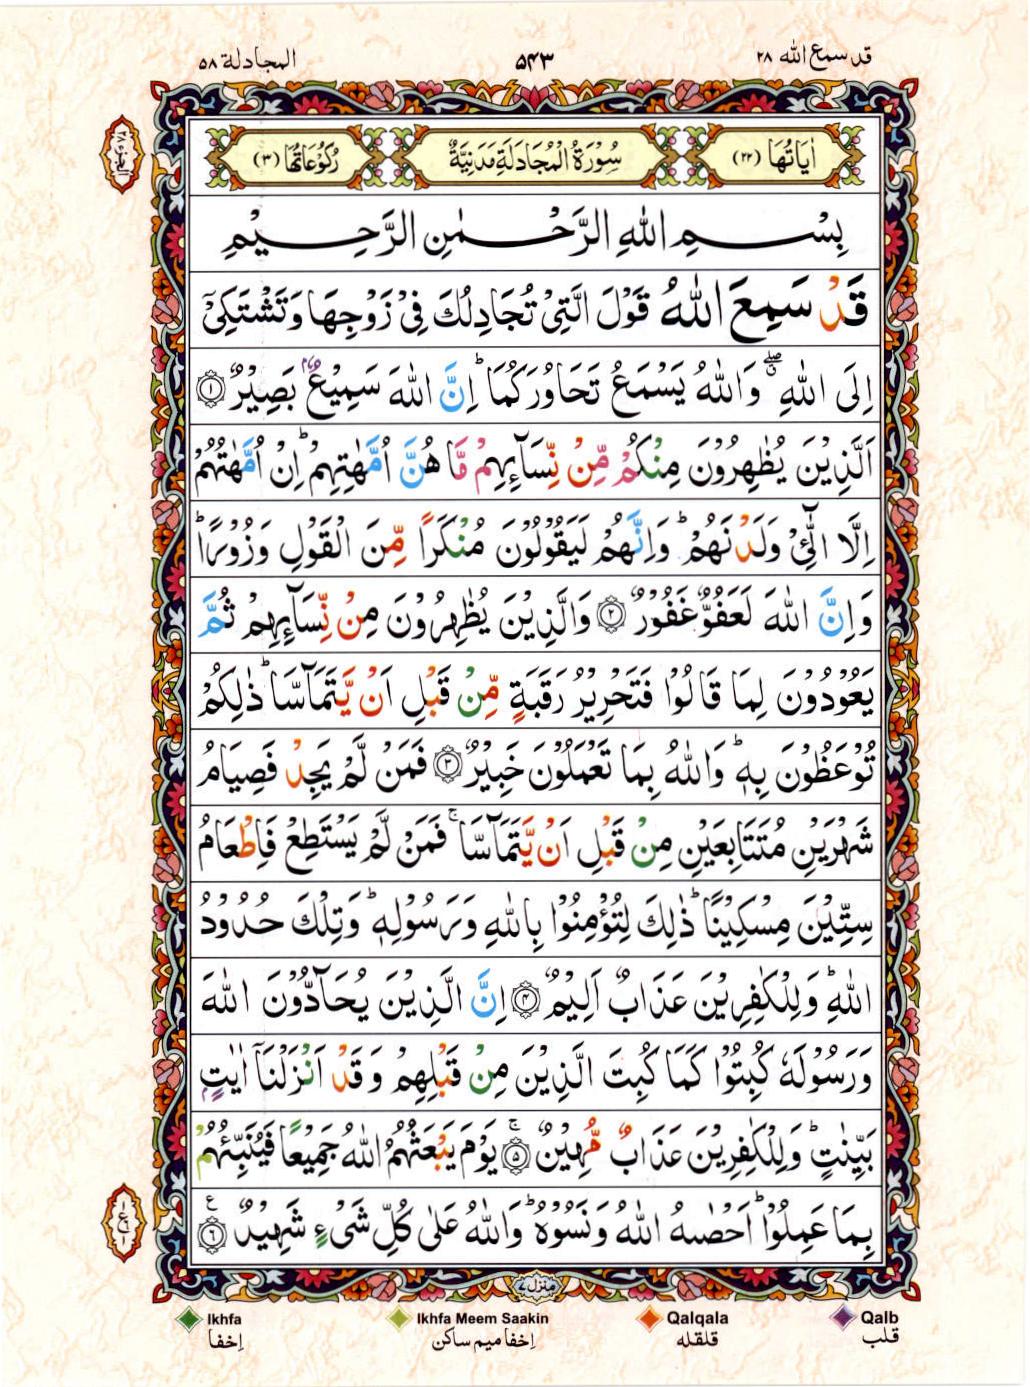 قد سمع الله ٢٨
٥٤٣
المجادلة ٥٨
اٰيَاتُهَا (٢٢)
سُوْرَةُ الْمُجَادَلَةِ مَدَنِيَّةٌ
رُكُوْعَاتُهَا (٣)
بِسْمِ اللهِ الرَّحْمٰنِ الرَّحِيْمِ
قَدْ سَمِعَ اللهُ قَوْلَ الَّتِيْ تُجَادِلُكَ فِيْ زَوْجِهَا وَتَشْتَكِيْٓ
اِلَى اللهِ ۖ وَاللهُ يَسْمَعُ تَحَاوُرَكُمَا ؕ اِنَّ اللهَ سَمِيْعٌۢ بَصِيْرٌ ﴿١﴾
اَلَّذِيْنَ يُظٰهِرُوْنَ مِنْكُمْ مِّنْ نِّسَآئِهِمْ مَّا هُنَّ اُمَّهٰتِهِمْ ؕ اِنْ اُمَّهٰتُهُمْ
اِلَّا الّٰٓئِيْ وَلَدْنَهُمْ ؕ وَاِنَّهُمْ لَيَقُوْلُوْنَ مُنْكَرًا مِّنَ الْقَوْلِ وَزُوْرًا ؕ
وَاِنَّ اللهَ لَعَفُوٌّ غَفُوْرٌ ﴿٢﴾ وَالَّذِيْنَ يُظٰهِرُوْنَ مِنْ نِّسَآئِهِمْ ثُمَّ
يَعُوْدُوْنَ لِمَا قَالُوْا فَتَحْرِيْرُ رَقَبَةٍ مِّنْ قَبْلِ اَنْ يَّتَمَآسَّا ؕ ذٰلِكُمْ
تُوْعَظُوْنَ بِهٖ ؕ وَاللهُ بِمَا تَعْمَلُوْنَ خَبِيْرٌ ﴿٣﴾ فَمَنْ لَّمْ يَجِدْ فَصِيَامُ
شَهْرَيْنِ مُتَتَابِعَيْنِ مِنْ قَبْلِ اَنْ يَّتَمَآسَّا ۚ فَمَنْ لَّمْ يَسْتَطِعْ فَاِطْعَامُ
سِتِّيْنَ مِسْكِيْنًا ؕ ذٰلِكَ لِتُؤْمِنُوْا بِاللهِ وَرَسُوْلِهٖ ؕ وَتِلْكَ حُدُوْدُ
اللهِ ؕ وَلِلْكٰفِرِيْنَ عَذَابٌ اَلِيْمٌ ﴿٤﴾ اِنَّ الَّذِيْنَ يُحَآدُّوْنَ اللهَ
وَرَسُوْلَهٗ كُبِتُوْا كَمَا كُبِتَ الَّذِيْنَ مِنْ قَبْلِهِمْ وَقَدْ اَنْزَلْنَآ اٰيٰتٍۭ
بَيِّنٰتٍ ؕ وَلِلْكٰفِرِيْنَ عَذَابٌ مُّهِيْنٌ ۚ ﴿٥﴾ يَوْمَ يَبْعَثُهُمُ اللهُ جَمِيْعًا فَيُنَبِّئُهُمْ
بِمَا عَمِلُوْا ؕ اَحْصٰىهُ اللهُ وَنَسُوْهُ ؕ وَاللهُ عَلٰى كُلِّ شَيْءٍ شَهِيْدٌ ﴿٦﴾ ع
منزل ٧
Qalb
قلب
Qalqala
قلقله
Ikhfa Meem Saakin
إخفا ميم ساكن
Ikhfa
إخفا